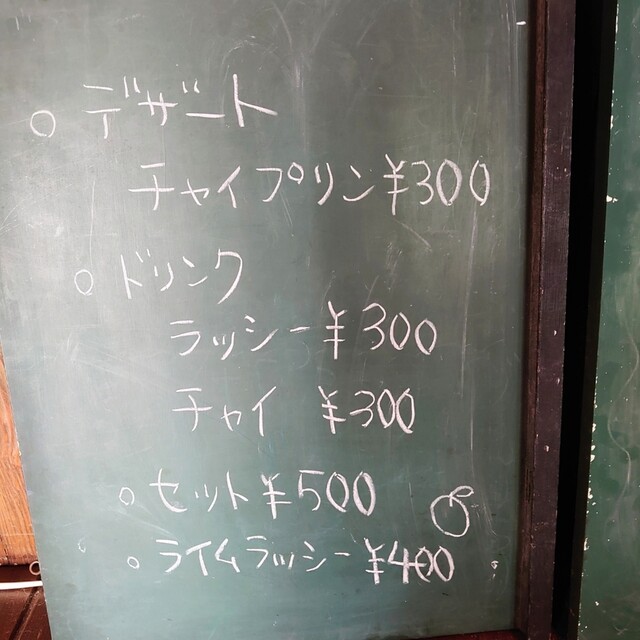 ○ デザート
チャイプリン ¥300
○ ドリンク
ラッシー ¥300
チャイ ¥300
○ セット ¥500
○ ライムラッシー ¥400